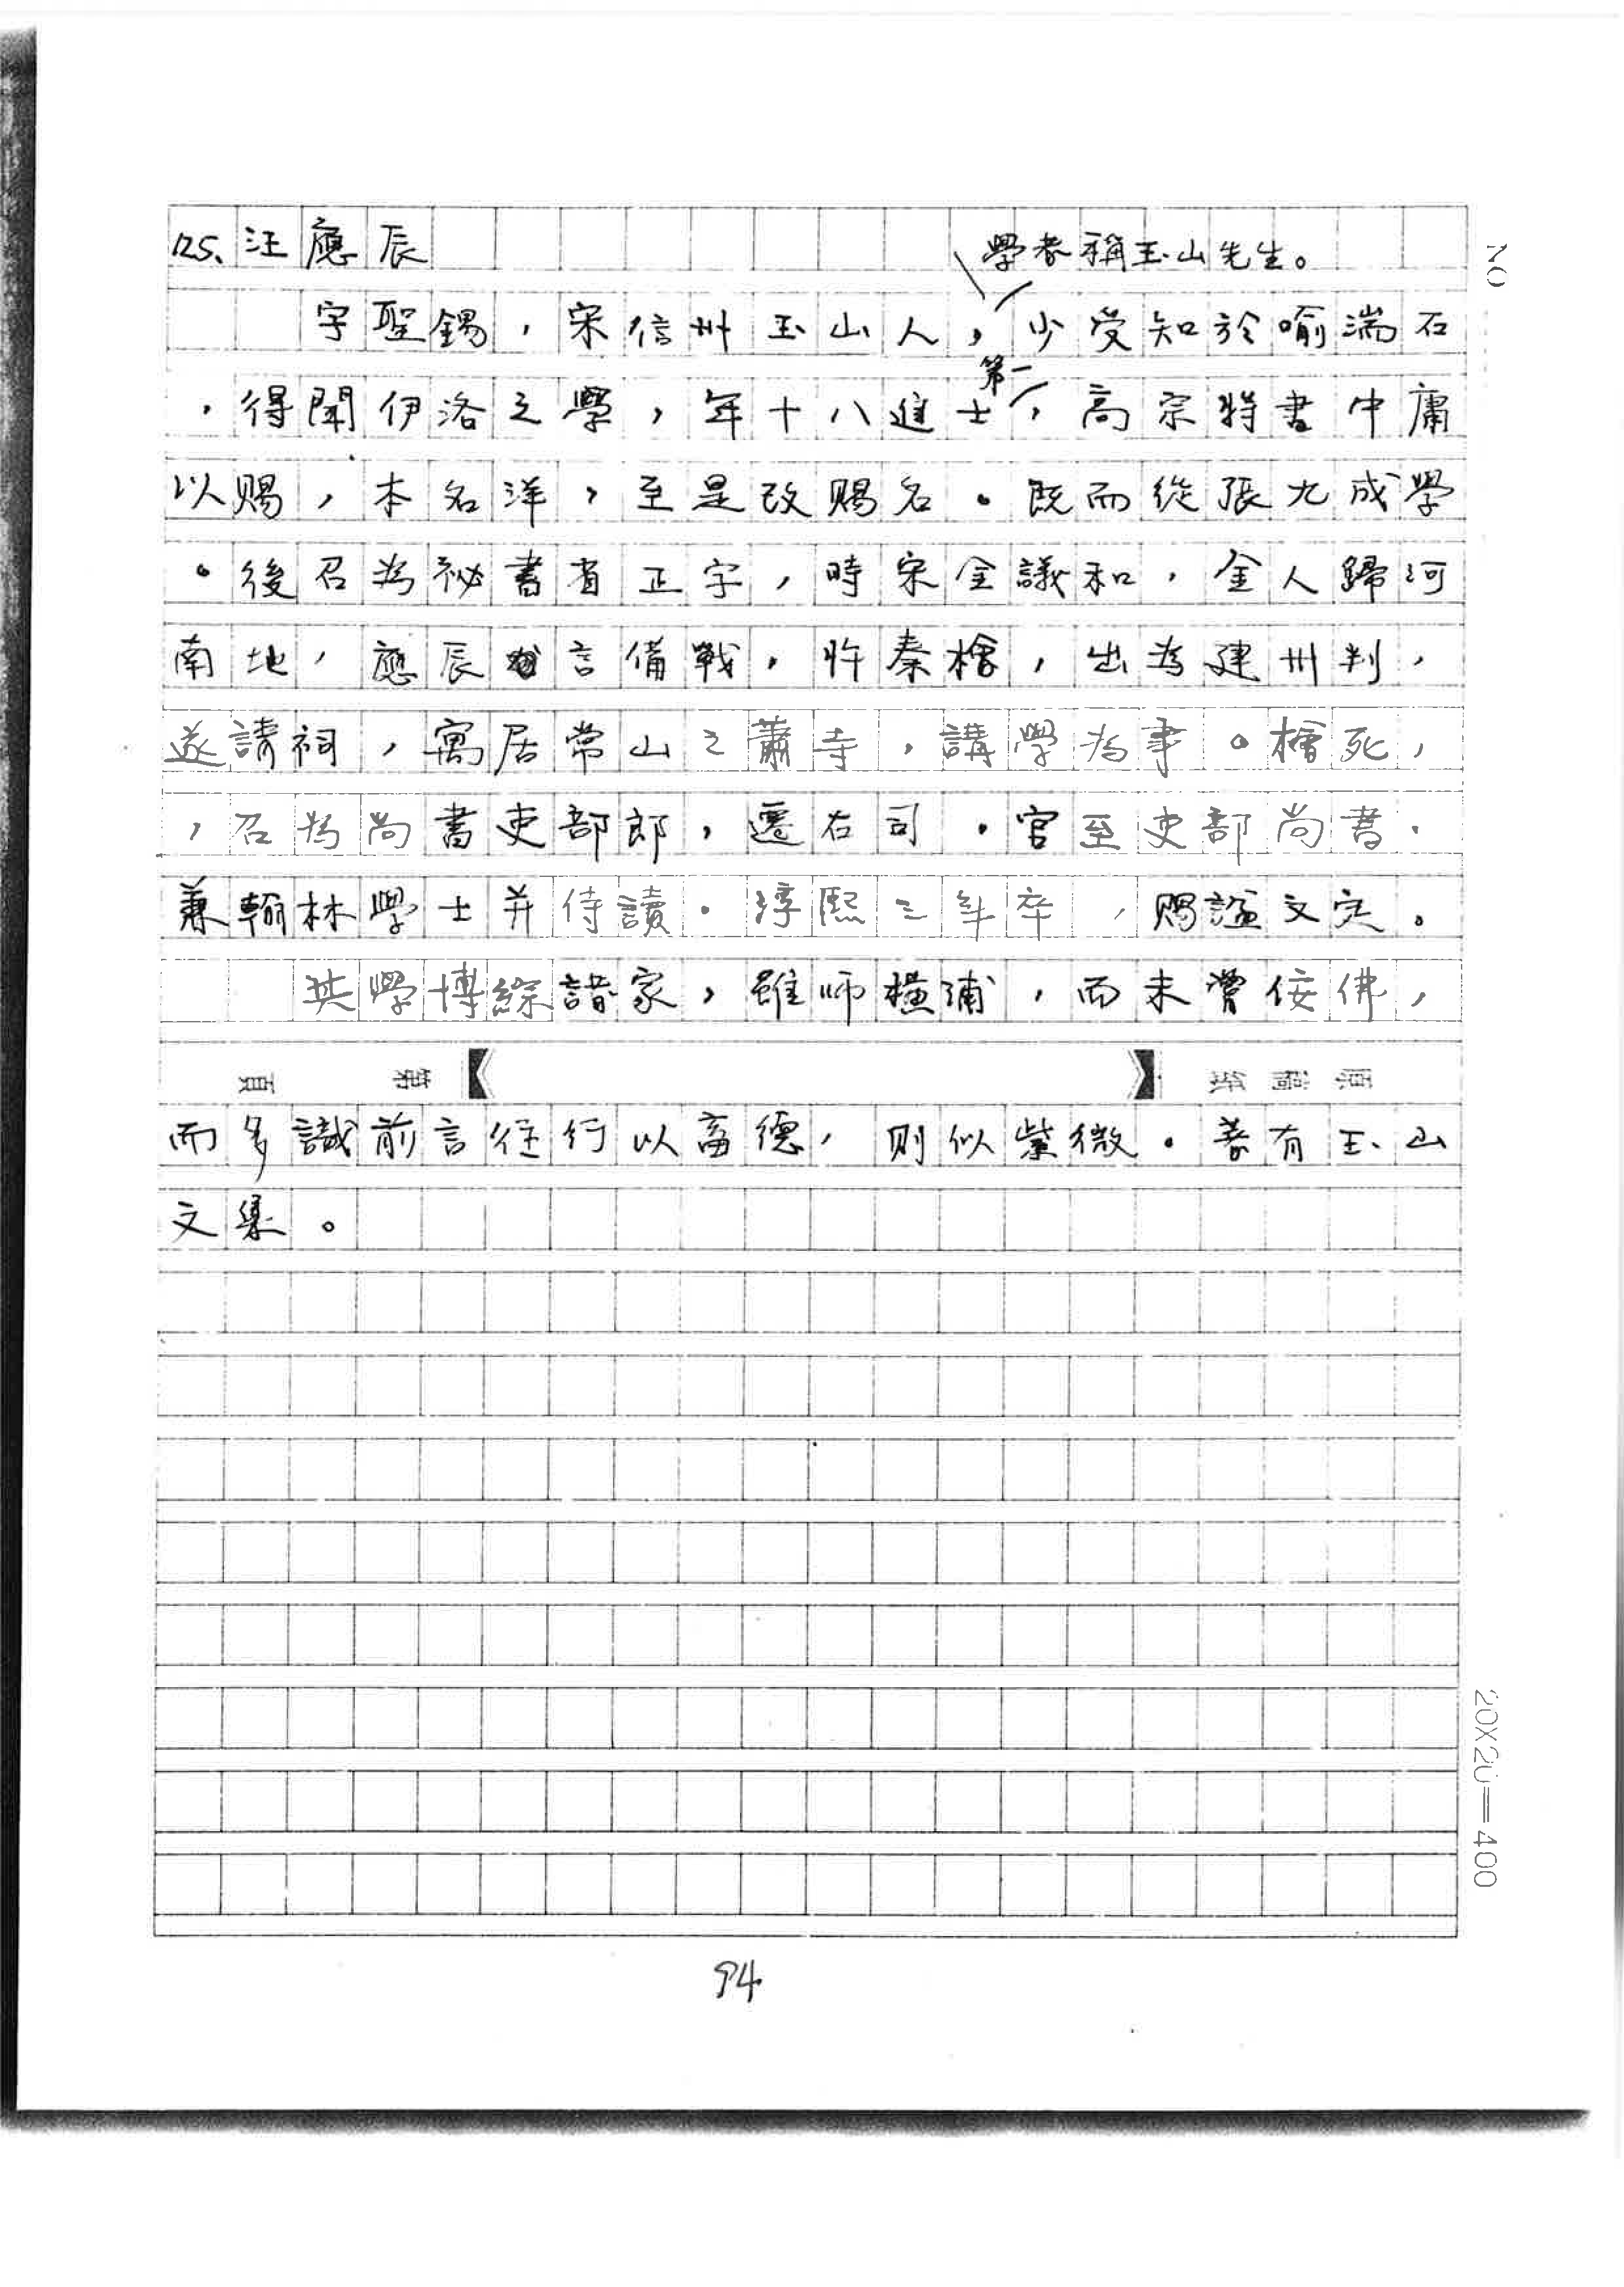 125、汪應辰
學者稱玉山先生。
字聖錫，宋信州玉山人，少受知於喻湍石
第一
，得聞伊洛之學，年十八進士，高宗特書中庸
以賜，本名洋，至是改賜名。既而從張九成學
。後召為祕書省正字，時宋金議和，金人歸河
南地，應辰言備戰，忤秦檜，出為建州判，
遂請祠，寓居常山之蕭寺，講學為事。檜死，
，召為尚書吏部郎，遷右司。官至吏部尚書，
兼翰林學士并侍讀。淳熙三年卒，賜諡文定。
其學博綜諸家，雖師橫浦，而未嘗佞佛，
原稿紙
第 頁
而多識前言往行以畜德，則似紫微。著有玉山
文集。
20X20=400
94